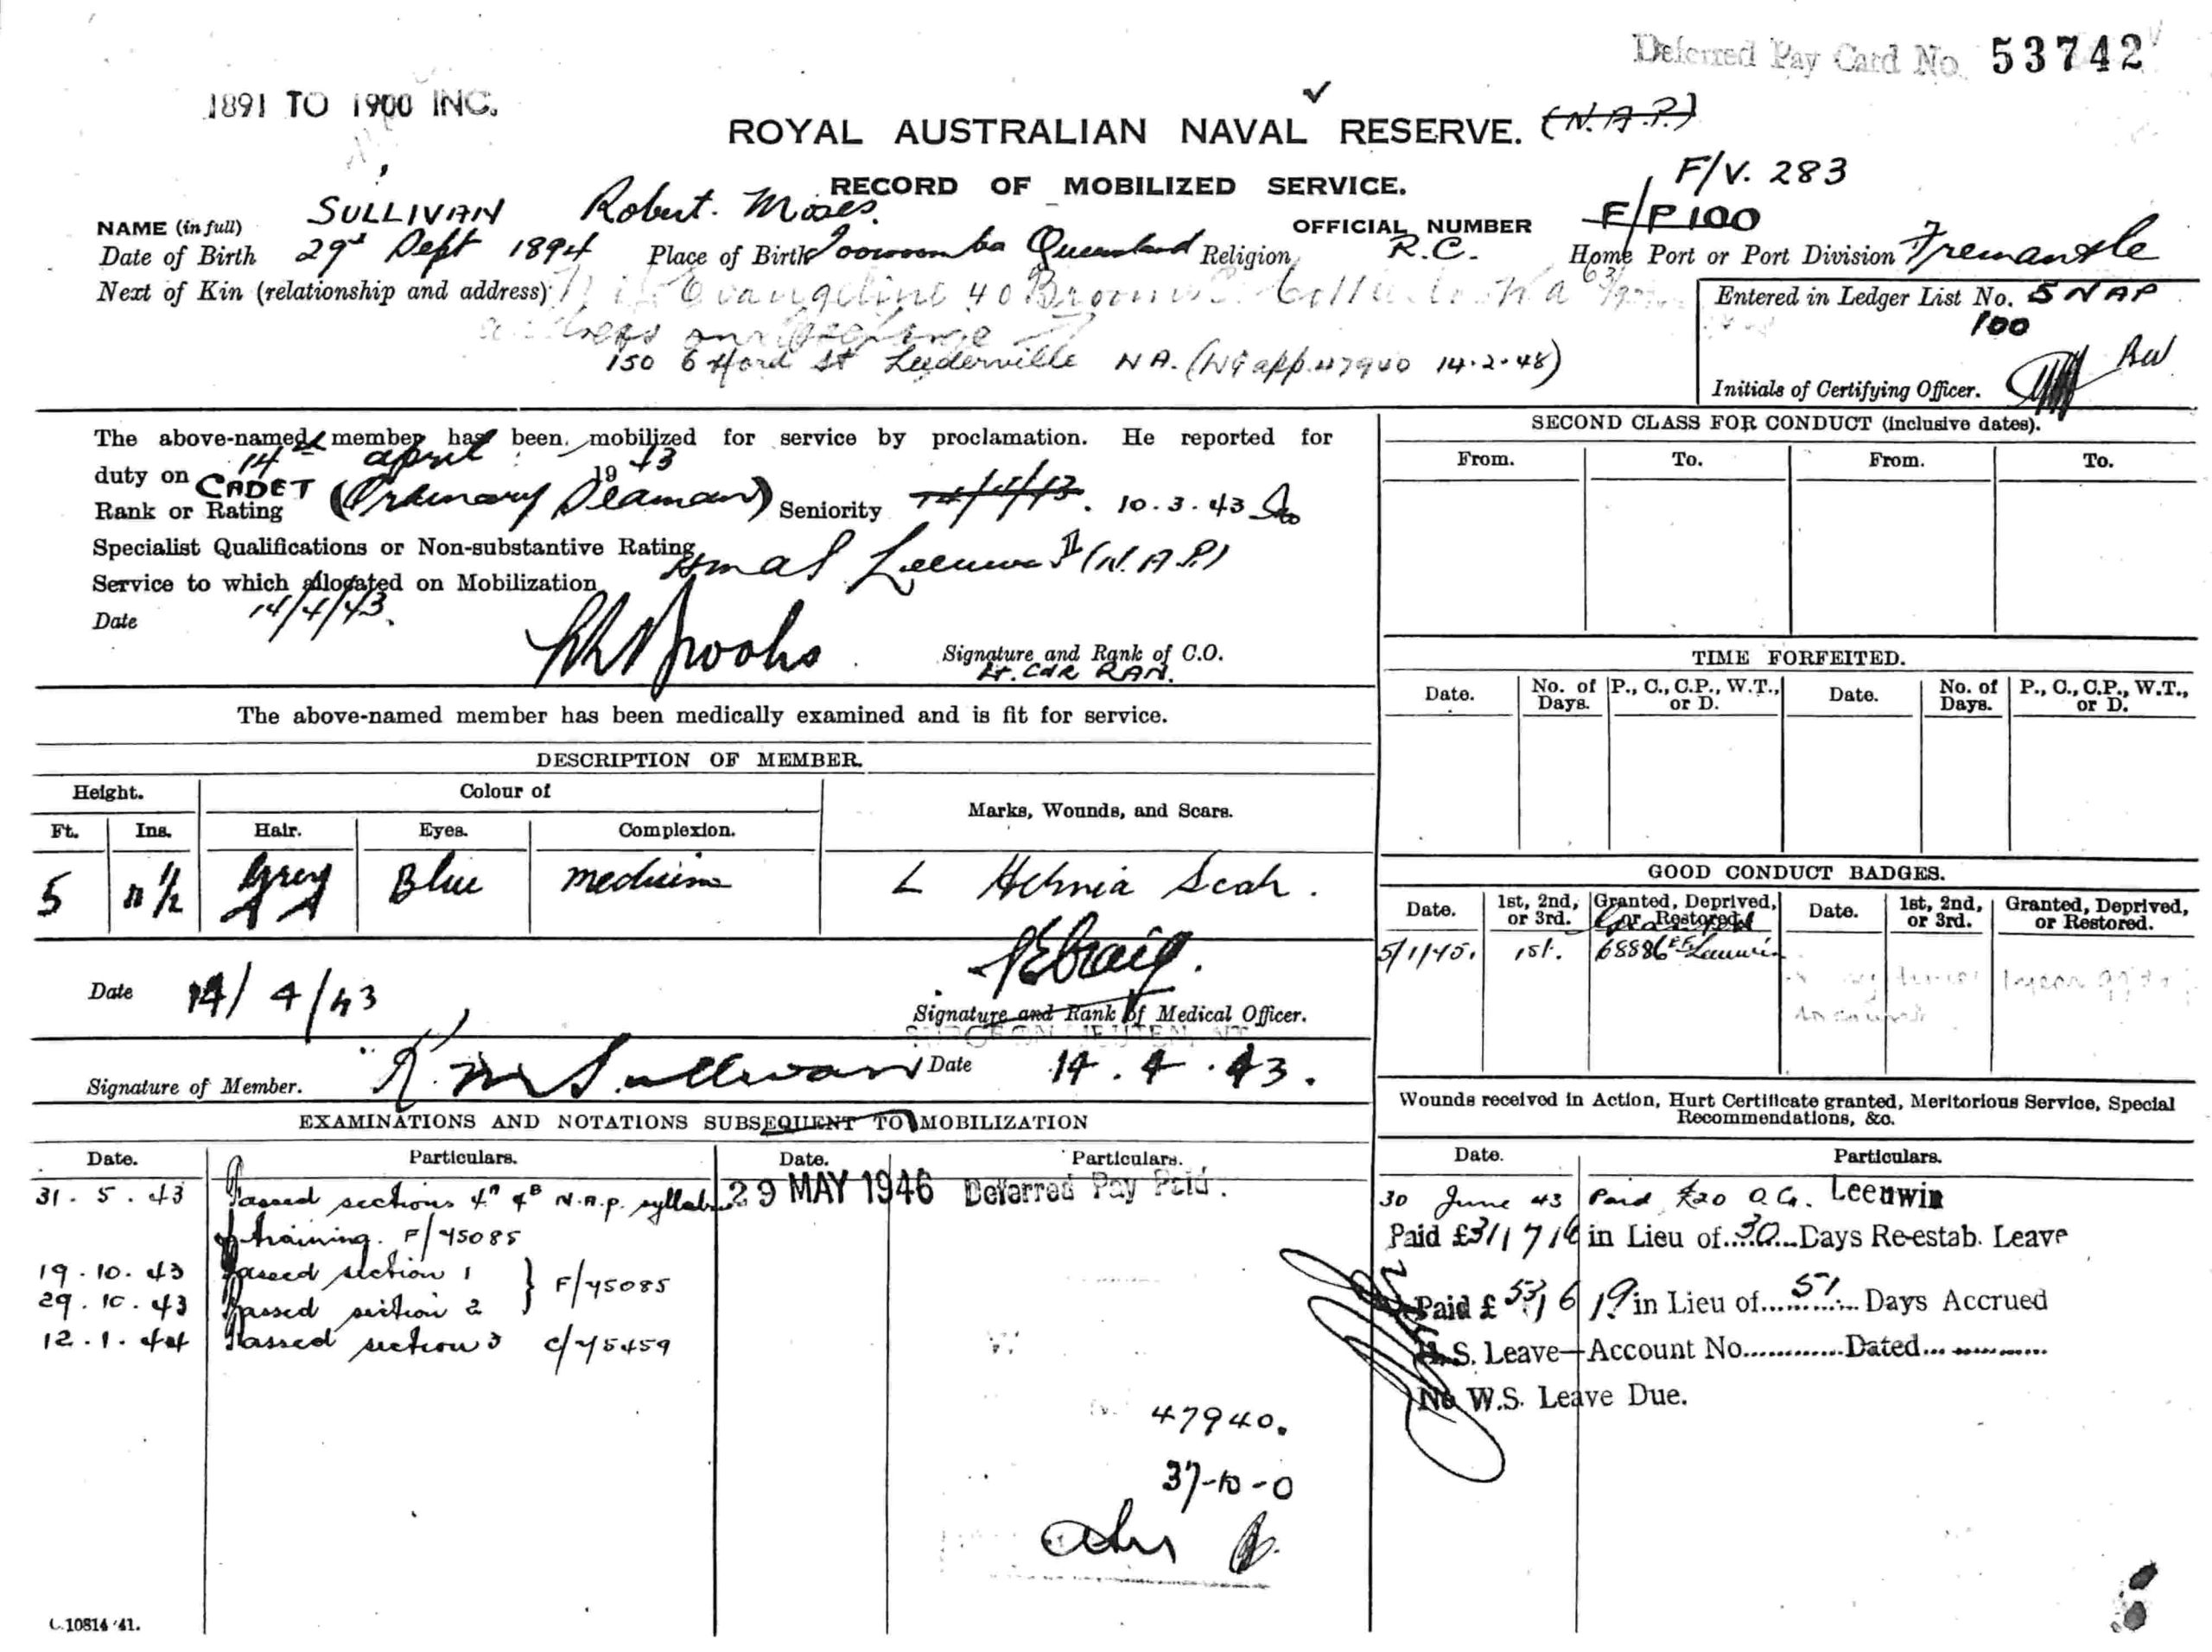 Deferred Pay Card No. 53742
1891 TO 1900 INC.
ROYAL AUSTRALIAN NAVAL RESERVE. (N.A.P.)
RECORD OF MOBILIZED SERVICE.
F/V. 283
NAME (in full) SULLIVAN Robert Moses. OFFICIAL NUMBER F/P100
Date of Birth 29th Sept 1894 Place of Birth Toowoomba Queensland Religion R.C. Home Port or Port Division Fremantle
Next of Kin (relationship and address) Evangeline 40
address on
150 St Leederville (app. 47940 14.2.48)
Entered in Ledger List No. 5 NAP
100
Initials of Certifying Officer. BW
The above-named member has been mobilized for service by proclamation. He reported for
duty on 14th April 1943
Rank or Rating CADET (Ordinary Seaman) Seniority 14/4/43. 10.3.43
Specialist Qualifications or Non-substantive Rating
Service to which allocated on Mobilization HMAS Leeuwin II (N.A.P.)
Date 14/4/43.
Signature and Rank of C.O.
Lt. Cdr RAN.
The above-named member has been medically examined and is fit for service.
DESCRIPTION OF MEMBER.
Height. Colour of Marks, Wounds, and Scars.
Ft. Ins. Hair. Eyes. Complexion.
5 11 1/2 Grey Blue medium L Hernia Scar.
Date 14/4/43
Signature and Rank of Medical Officer.
SURGEON LIEUTENANT
Signature of Member. R. M Sullivan Date 14.4.43.
EXAMINATIONS AND NOTATIONS SUBSEQUENT TO MOBILIZATION
Date. Particulars. Date. Particulars.
31.5.43 Passed sections 4A 4B N.A.P. syllabus
of training. F/45085
19.10.43 Passed section 1 } F/45085
29.10.43 Passed section 2
12.1.44 Passed section 3 C/45459
29 MAY 1946 Deferred Pay Paid.
47940.
37-10-0
C.10814/41.
SECOND CLASS FOR CONDUCT (inclusive dates).
From. To. From. To.
TIME FORFEITED.
Date. No. of Days. P., C., C.P., W.T., or D. Date. No. of Days. P., C., C.P., W.T., or D.
GOOD CONDUCT BADGES.
Date. 1st, 2nd, or 3rd. Granted, Deprived, or Restored. Date. 1st, 2nd, or 3rd. Granted, Deprived, or Restored.
Granted
5/1/45. 1st. 68886 Leeuwin
Wounds received in Action, Hurt Certificate granted, Meritorious Service, Special
Recommendations, &c.
Date. Particulars.
30 June 43 Paid £20 Leeuwin
Paid £31/7/6 in Lieu of 30 Days Re-estab. Leave
Paid £53/6/9 in Lieu of 51 Days Accrued
W.S. Leave—Account No............Dated............
No W.S. Leave Due.